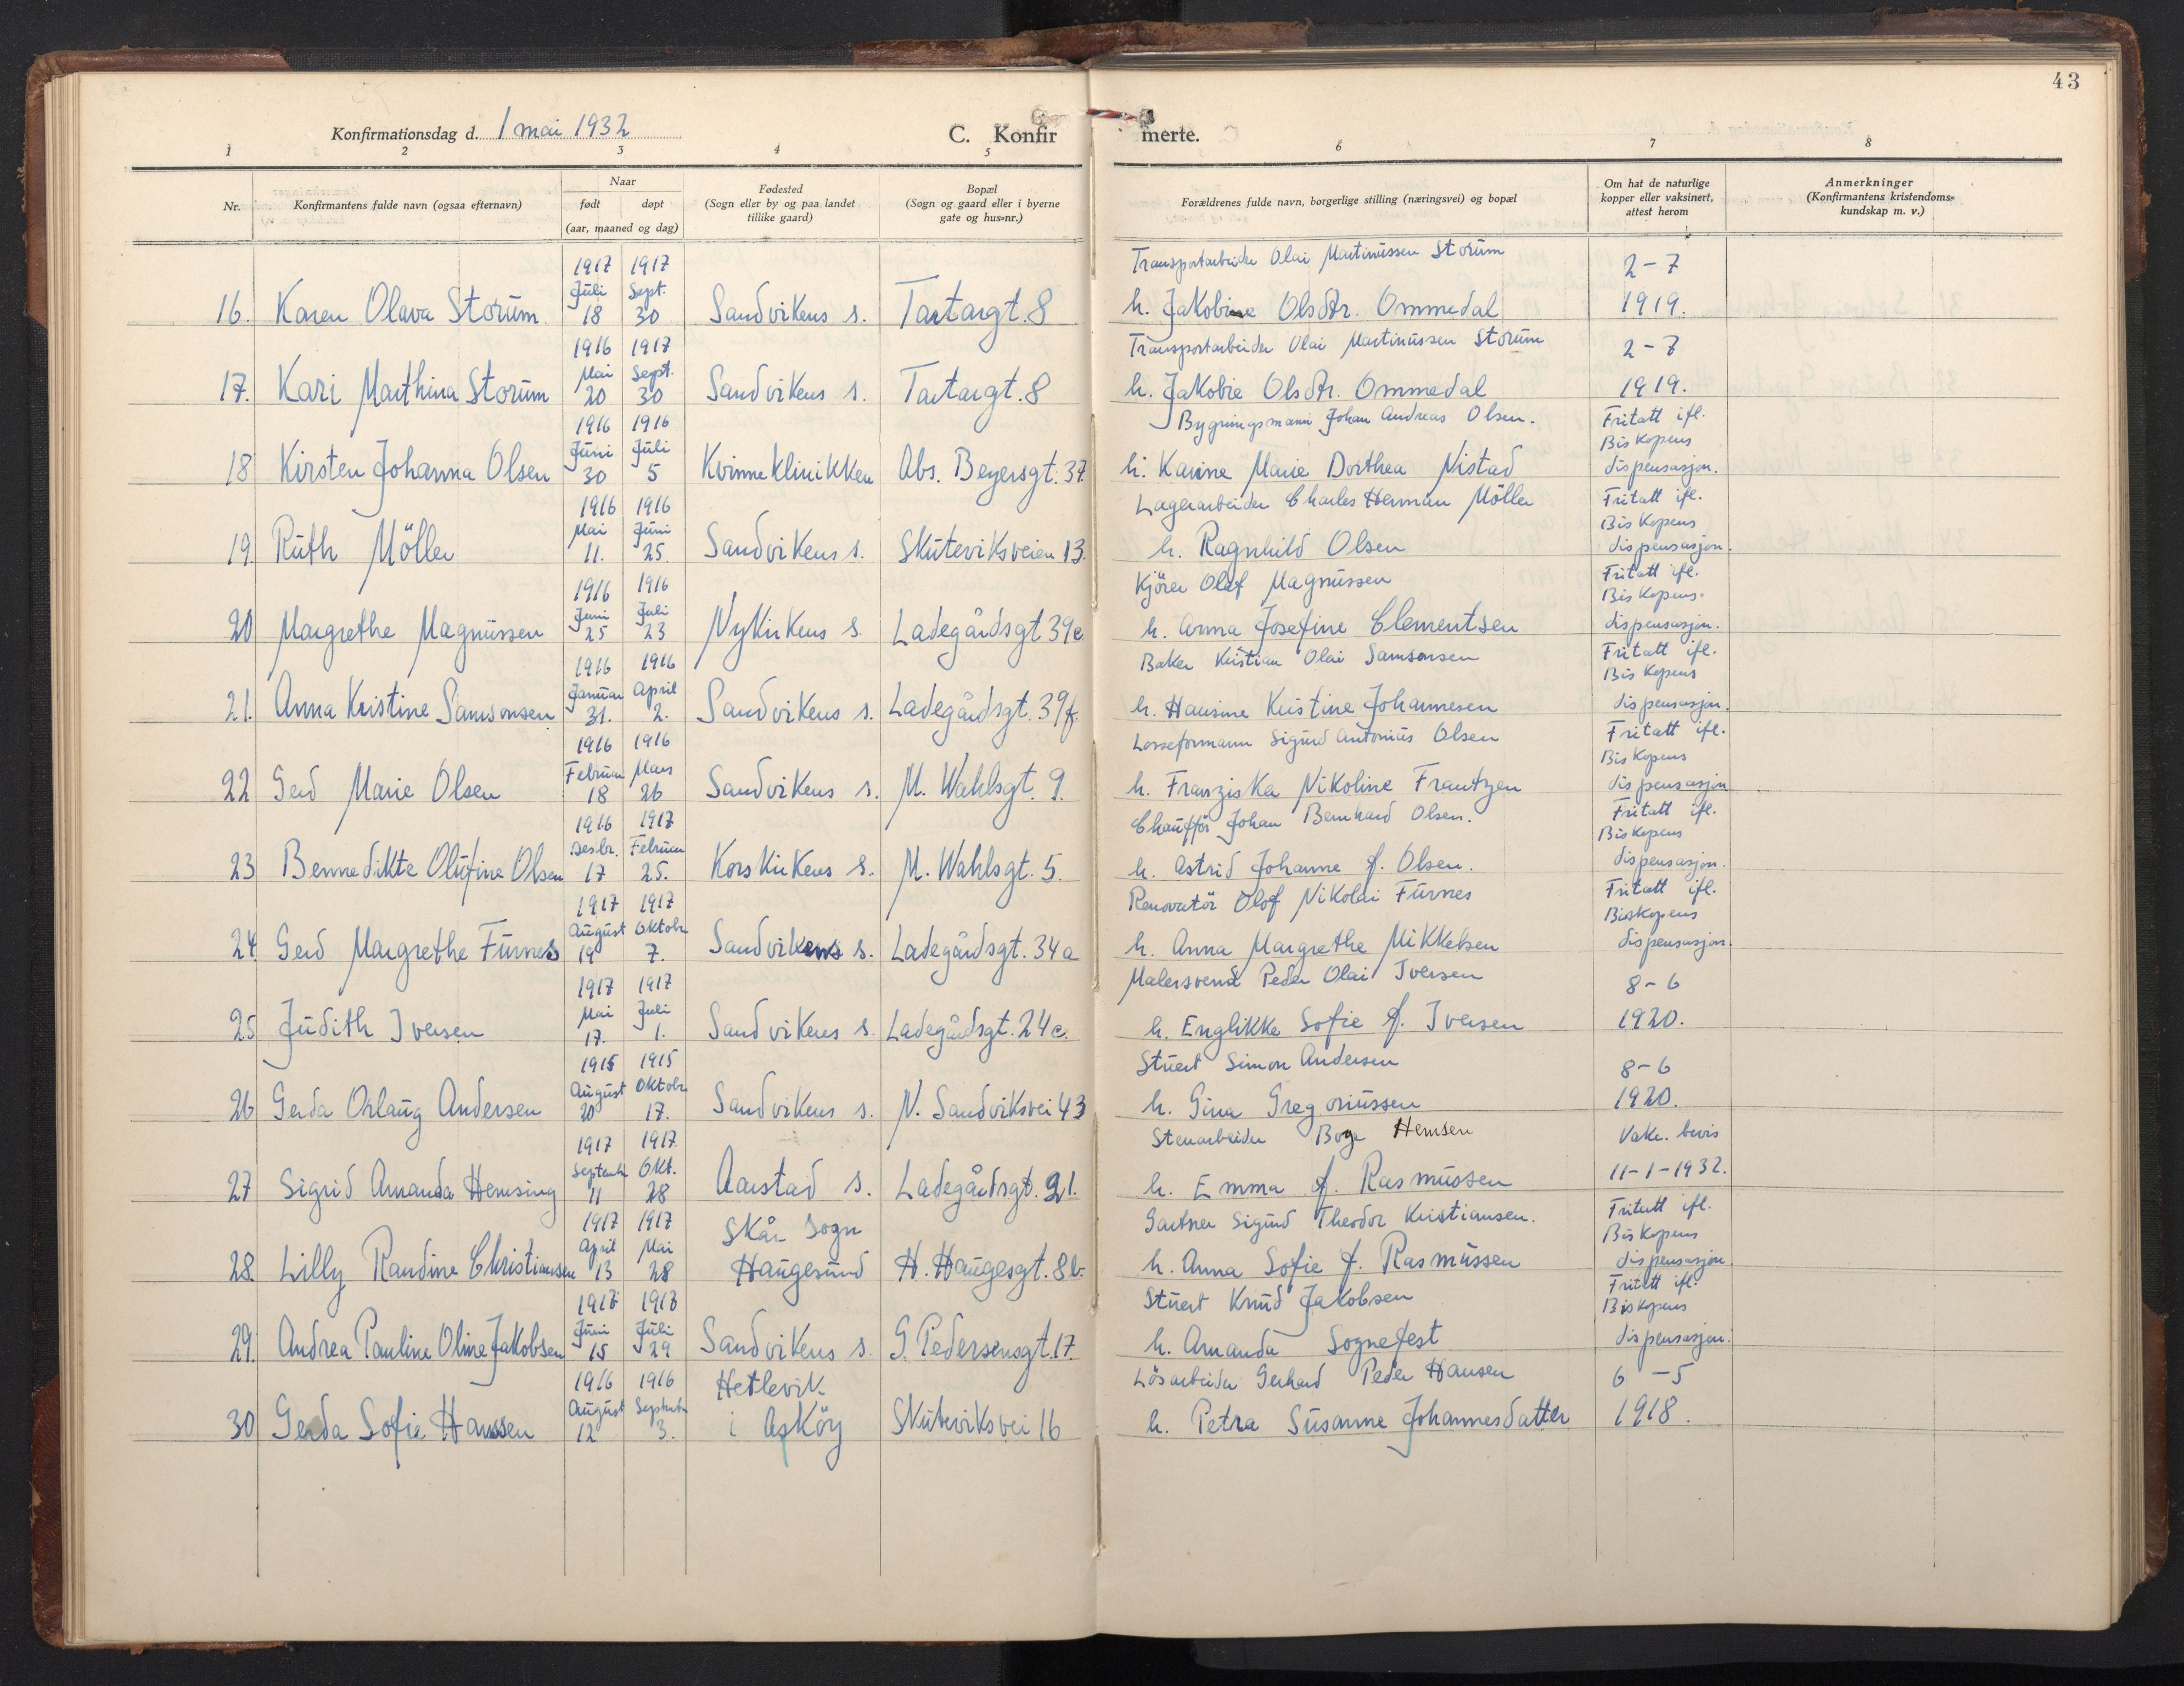 43
Konfirmationsdag d. 1 mai 1932 C. Konfirmerte.
1 2 3 4 5 6 7 8
Nr.
Konfirmantens fulde navn (ogsaa efternavn)
Naar
født døpt
(aar, maaned og dag)
Fødested
(Sogn eller by og paa landet
tillike gaard)
Bopæl
(Sogn og gaard eller i byerne
gate og hus-nr.)
Forældrenes fulde navn, borgerlige stilling (næringsvei) og bopæl
Om hat de naturlige
kopper eller vaksinert,
attest herom
Anmerkninger
(Konfirmantens kristendoms-
kundskap m. v.)
1917 1917 Transportarbeider Olai Martinussen Storum 2-7
Juli Sept.
16. Karen Olava Storum 18 30 Sandvikens s. Tartargt. 8 h. Jakobine Olsdtr. Ommedal 1919.
1916 1917 Transportarbeider Olai Martinussen Storum 2-7
Mai Sept.
17. Kari Marthina Storum 20 30 Sandvikens s. Tartargt. 8 h. Jakobie Olsdtr. Ommedal 1919.
1916 1916 Bygningsmann Johan Andreas Olsen. Fritatt ifl.
Juni Juli Biskopens
18 Kirsten Johanna Olsen 30 5 Kvinneklinikken Abs. Beyersgt. 37. h. Karine Marie Dorthea Nistad dispensasjon.
1916 1916 Lagerarbeider Charles Herman Möller Fritatt ifl.
Mai Juni Biskopens
19. Ruth Möller 11. 25. Sandvikens s. Skuteviksveien 13. h. Ragnhild Olsen dispensasjon.
1916 1916 Kjörer Olaf Magnussen Fritatt ifl.
Juni Juli Biskopens.
20 Margrethe Magnussen 25 23 Nykirkens s. Ladegårdsgt 39e h. Anna Josefine Clementsen dispensasjon.
1916 1916 Baker Kristian Olai Samsonsen Fritatt ifl.
Januar April Biskopens
21. Anna Kristine Samsonsen 31. 2. Sandvikens s. Ladegårdsgt. 39f. h. Hansine Kristine Johannesen dispensasjon.
1916 1916 Losseformann Sigurd Antonius Olsen Fritatt ifl.
Februar Mars Biskopens
22 Gerd Marie Olsen 18 26 Sandvikens s. M. Wahlsgt. 9. h. Franziska Nikoline Frantzen dispensasjon
1916 1917 Chauffør Johan Bernhard Olsen. Fritatt ifl.
Desbr. Februar Biskopens
23 Bennedikte Olufine Olsen 17 25. Korskirkens s. M. Wahlsgt. 5. h. Astrid Johanne f. Olsen. dispensasjon.
1917 1917 Renovatör Olof Nikolai Furnes Fritatt ifl.
August Oktobr Biskopens
24. Gerd Margrethe Furnes 19 7. Sandvikens s. Ladegårdsgt. 34a h. Anna Margrethe Mikkelsen dispensasjon.
1917 1917 Malersvend Peder Olai Iversen 8-6
Mai Juli
25 Judith Iversen 17. 1. Sandvikens s. Ladegårdsgt. 24c. h. Englikke Sofie f. Iversen 1920.
1915 1915 Stuert Simon Andersen 8-6
August Oktobr
26 Gerda Oslaug Andersen 20 17. Sandvikens s. N. Sandviksvei 43 h. Gina Gregoriussen 1920.
1917 1917 Stenarbeider Boye Hemsen Vakc. bevis
Septembr Okt.
27 Sigrid Amanda Hemsing 11 28 Aarstad s. Ladegårdsgt. 21. h. Emma f. Rasmussen 11-1-1932.
1917 1917 Skår sogn Gartner Sigurd Theodor Kristiansen. Fritatt ifl.
April Mai Biskopens
28. Lilly Randine Christiansen 13 28 Haugesund H. Haugesgt. 8b. h. Anna Sofie f. Rasmussen dispensasjon
1917 1917 Stuert Knud Jakobsen Fritatt ifl.
Juni Juli Biskopens
29. Andrea Pauline Oline Jakobsen 15 29 Sandvikens s. G. Pedersensgt. 17. h. Amanda Sognefest dispensasjon.
1916 1916 Hetlevik Lösarbeider Gerhard Peder Hansen 6 - 5
August Septembr
30 Gerda Sofie Hanssen 12 3. i Asköy Skuteviksvei 16 h. Petra Susanne Johannesdatter 1918.